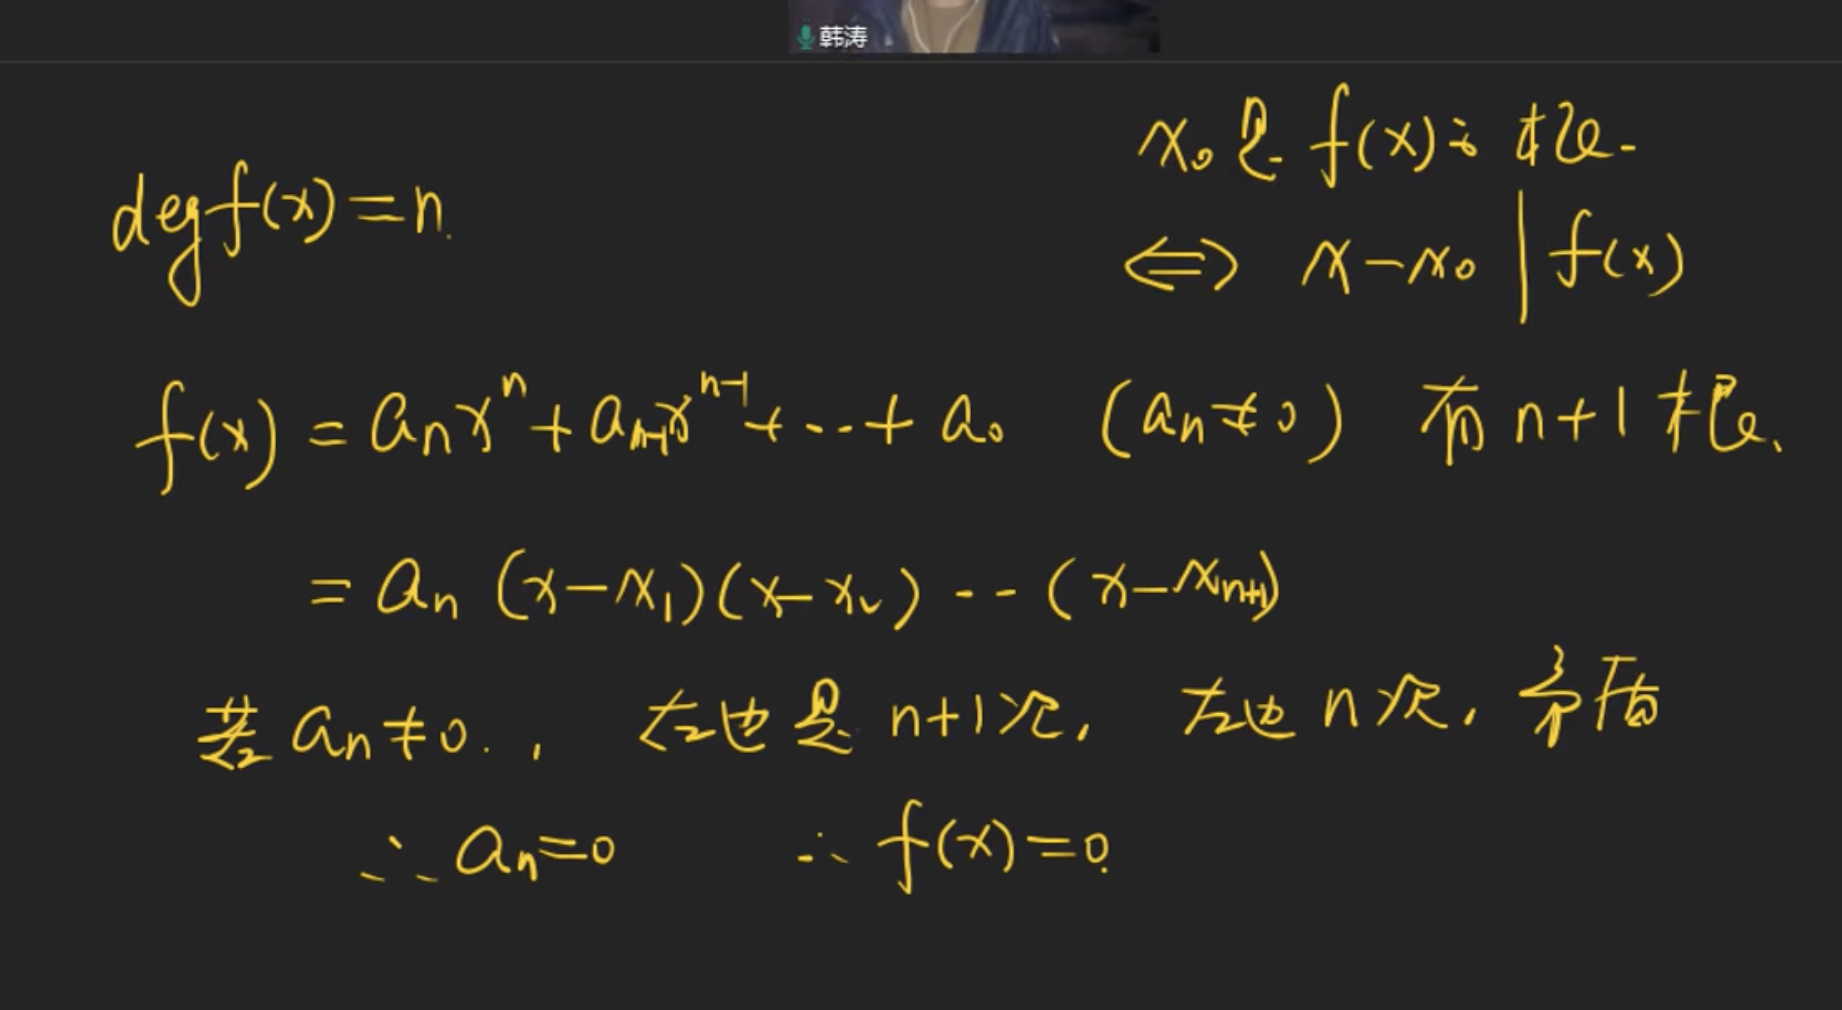 韩涛
x₀是f(x)的根.
deg f(x)=n.
⟺ x-x₀ | f(x)
f(x) = aₙxⁿ+aₙ₋₁xⁿ⁻¹+...+a₀ (aₙ≠0) 有n+1根、
= aₙ (x-x₁)(x-x₂)...(x-xₙ₊₁)
若aₙ≠0., 右边是n+1次, 左边n次, 矛盾
∴aₙ=0 ∴f(x)=0.